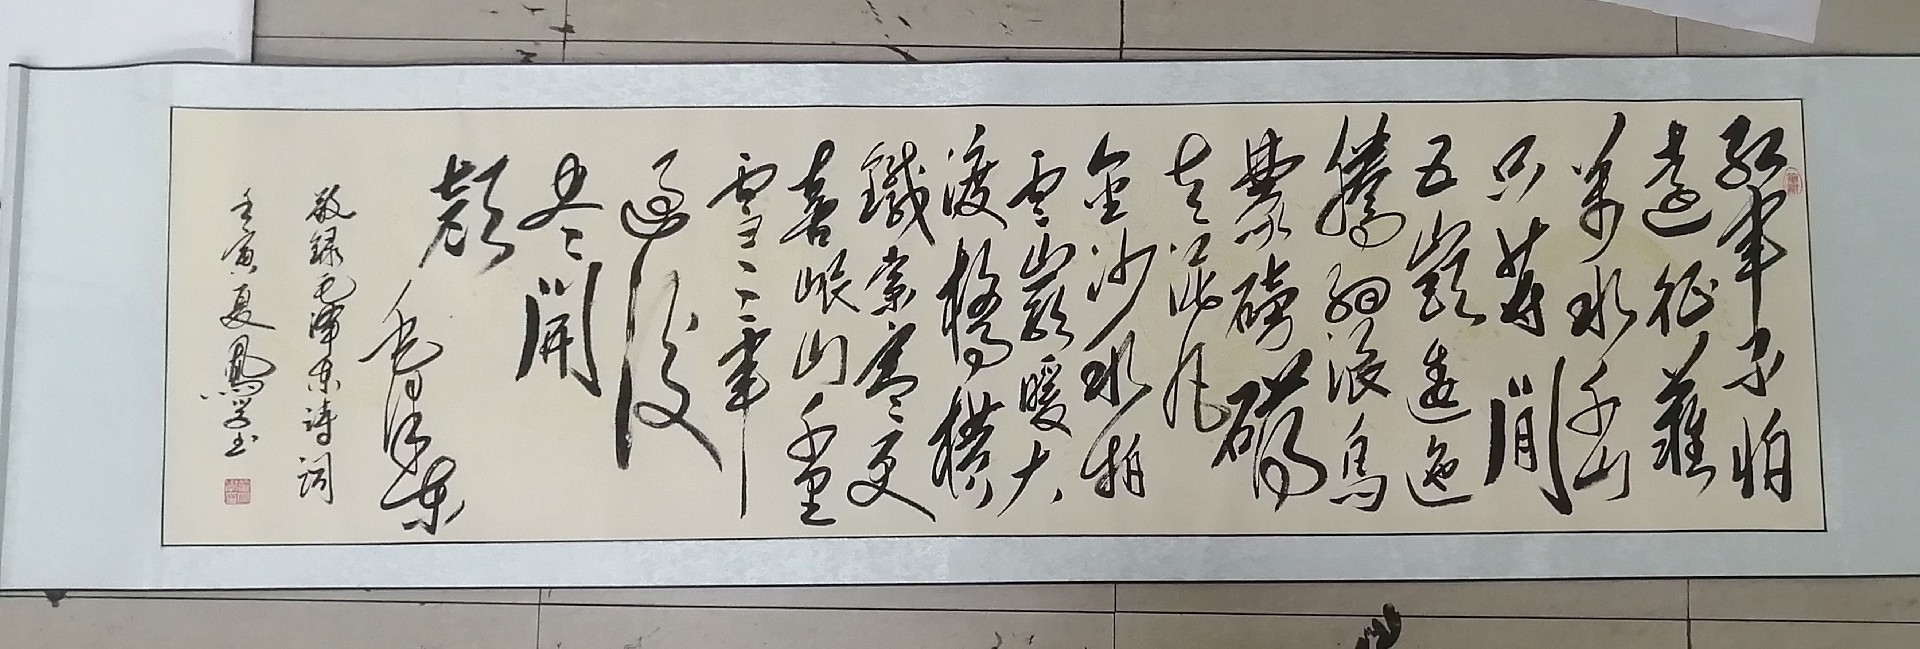 紅軍不怕
遠征難
萬水千山
只等閒
五嶺逶迤
騰細浪烏
蒙磅礴
走泥丸
金沙水拍
雲巖暖大
渡橋橫
鐵索寒更
喜岷山千里
雪三軍
過後
盡開
顏
毛澤東
敬録毛澤東詩詞
壬寅夏鳳學书